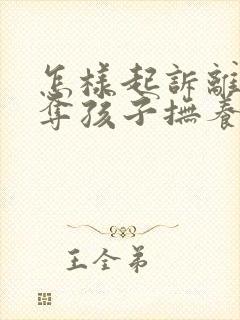 怎樣起訴離
奪孩子撫養
王全弟